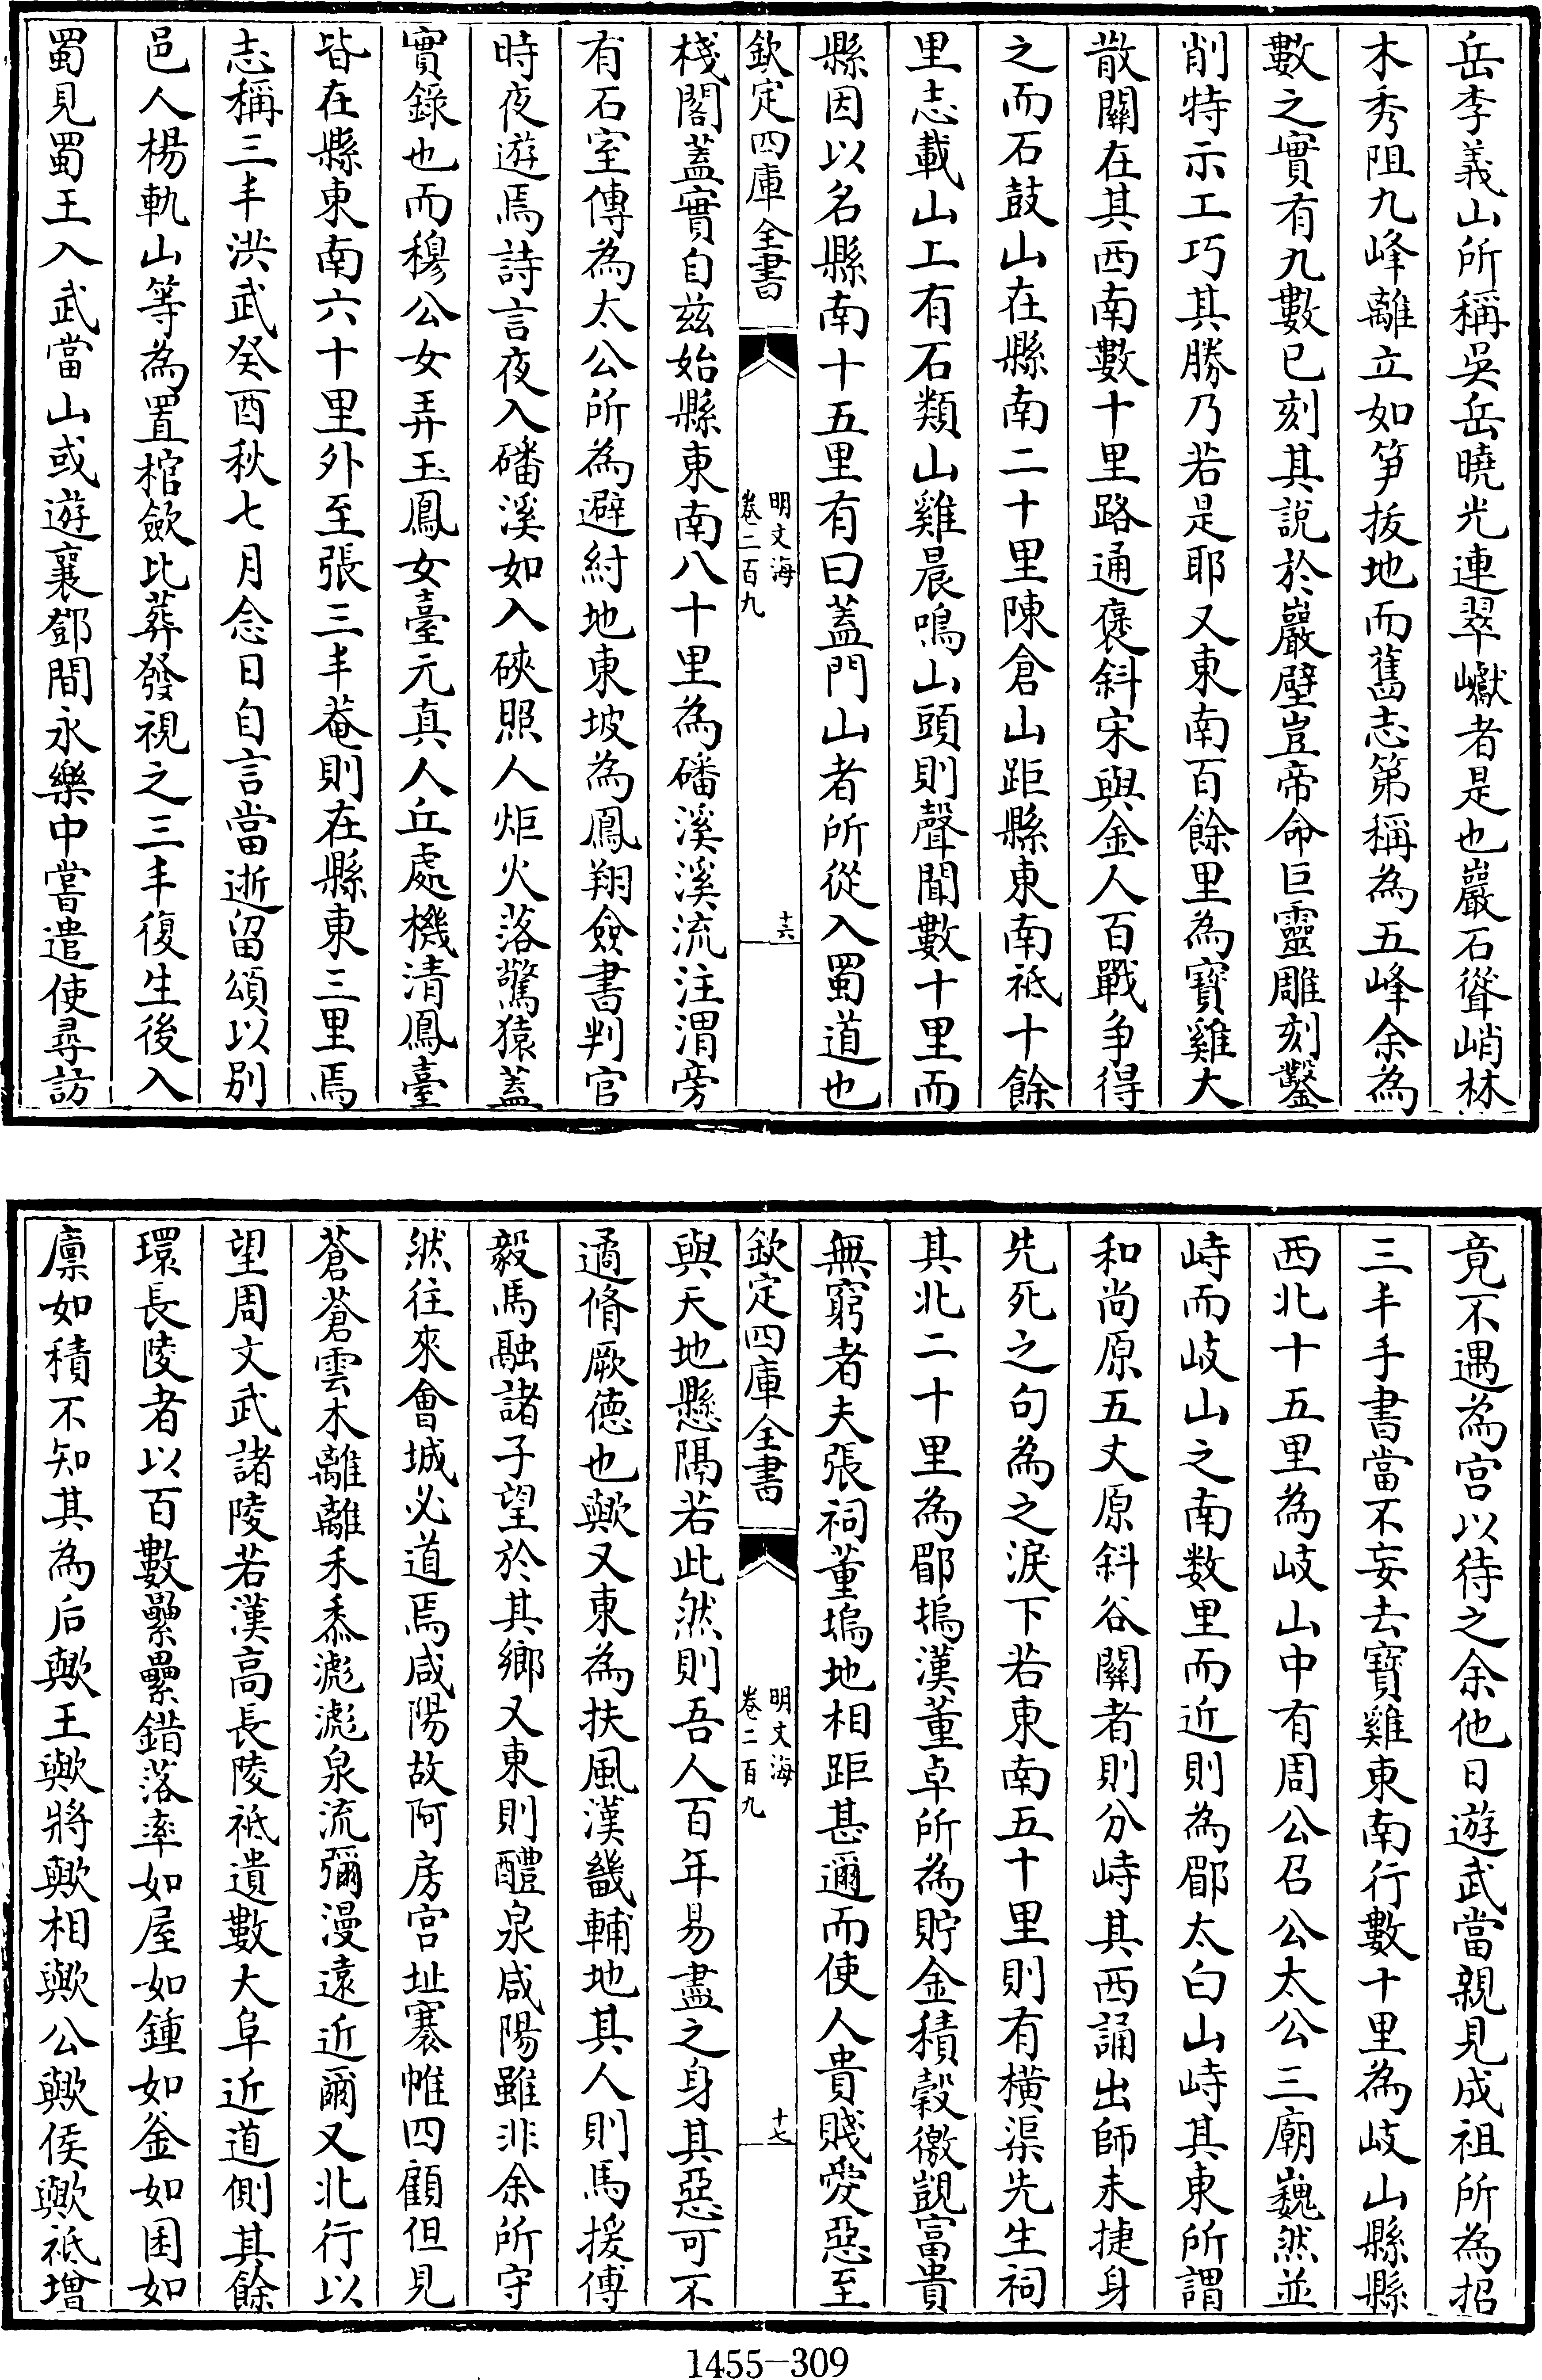 岳李義山所稱吳岳曉光連翠巘者是也巖石聳峭林
木秀阻九峰離立如笋拔地而舊志第稱為五峰余為
數之實有九數已刻其說於巖壁豈帝命巨靈雕刻鑿
削特示工巧其勝乃若是耶又東南百餘里為寶雞大
散關在其西南數十里路通褒斜宋與金人百戰爭得
之而石鼓山在縣南二十里陳倉山距縣東南祗十餘
里志載山上有石類山雞晨鳴山頭則聲聞數十里而
縣因以名縣南十五里有曰蓋門山者所從入蜀道也
欽定四庫全書
明文海
卷二百九
十六
棧閣蓋實自兹始縣東南八十里為磻溪溪流注渭旁
有石室傳為太公所為避紂地東坡為鳳翔僉書判官
時夜遊焉詩言夜入磻溪如入硤照人炬火落驚猿蓋
實錄也而穆公女弄玉鳳女臺元真人丘處機清鳳臺
皆在縣東南六十里外至張三丰菴則在縣東三里焉
志稱三丰洪武癸酉秋七月念日自言當逝留頌以別
邑人楊軌山等為置棺歛比葬發視之三丰復生後入
蜀見蜀王入武當山或遊襄鄧間永樂中嘗遣使尋訪
竟不遇為宫以待之余他日遊武當親見成祖所為招
三丰手書當不妄去寶雞東南行數十里為岐山縣縣
西北十五里為岐山中有周公召公太公三廟巍然並
峙而岐山之南数里而近則為郿太白山峙其東所謂
和尚原五丈原斜谷關者則分峙其西誦出師未捷身
先死之句為之淚下若東南五十里則有横渠先生祠
其北二十里為郿塢漢董卓所為貯金積穀徼覬富貴
無窮者夫張祠董塢地相距甚邇而使人貴賤愛惡至
欽定四庫全書
明文海
卷二百九
十七
與天地懸隔若此然則吾人百年易盡之身其惡可不
遹脩厥徳也歟又東為扶風漢畿輔地其人則馬援傅
毅馬融諸子望於其鄉又東則醴泉咸陽雖非余所守
然往來會城必道焉咸陽故阿房宫址褰帷四顧但見
蒼蒼雲木離離禾黍滮滮泉流彌漫遠近爾又北行以
望周文武諸陵若漢高長陵祗遺數大阜近道側其餘
環長陵者以百數纍纍錯落率如屋如鍾如釜如囷如
廪如積不知其為后歟王歟將歟相歟公歟侯歟祗增
1455-309